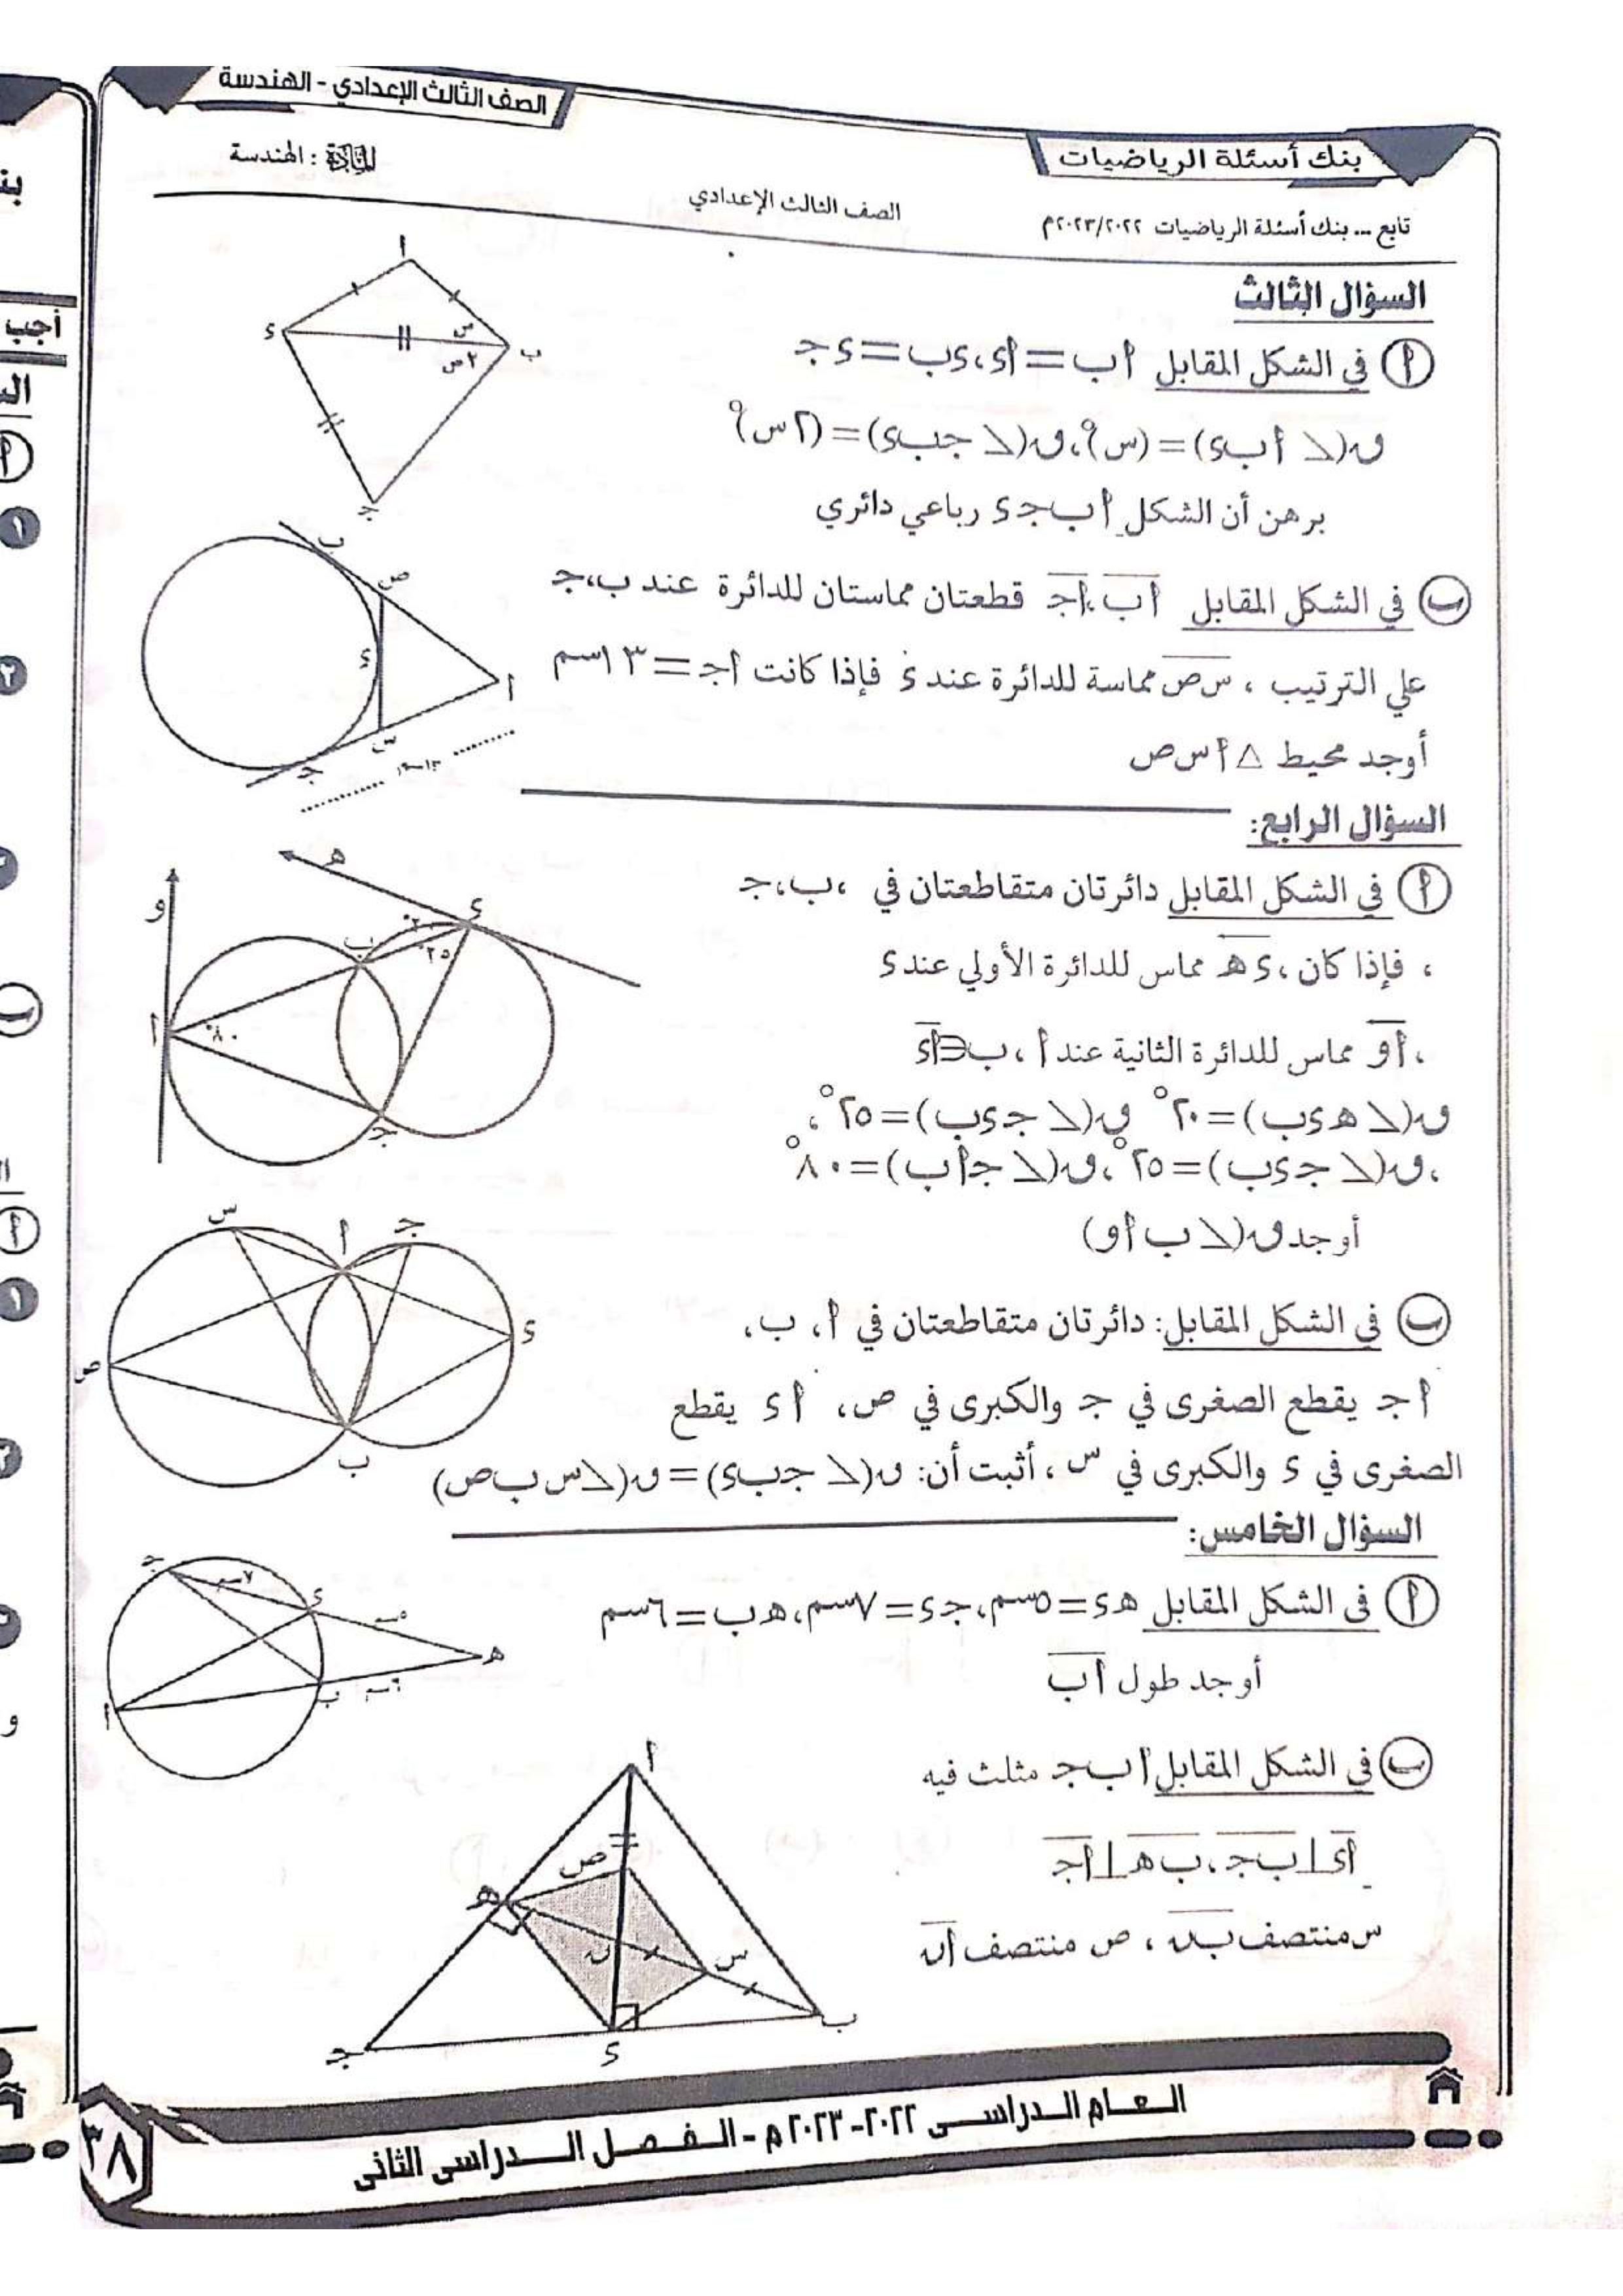 الصف الثالث الإعدادي - الهندسة
بنك أسئلة الرياضيات
المادة : الهندسة
الصف الثالث الإعدادي
تابع ... بنك أسئلة الرياضيات ٢٠٢٣/٢٠٢٢م
السؤال الثالث
أ في الشكل المقابل أب = أء، ءب = ءجـ
ق(∠ أبء) = (س)°، ق(∠ جبء) = (٢س)°
برهن أن الشكل أب جـ ء رباعي دائري
أ
ء
س
٢س
ب
جـ
ب في الشكل المقابل أب، أجـ قطعتان مماستان للدائرة عند ب، جـ
علي الترتيب ، س ص مماسة للدائرة عند ء فإذا كانت أجـ = ١٣سم
أوجد محيط △ أ س ص
ب
ص
ء
أ
س
جـ
١٣سم
السؤال الرابع:
أ في الشكل المقابل دائرتان متقاطعتان في ، ب، جـ
، فإذا كان ، ء هـ مماس للدائرة الأولي عند ء
، أ و مماس للدائرة الثانية عند أ ، ب ∈ أء
ق(∠ هـ ء ب) = ٢٠° ق(∠ جـ ء ب) = ٢٥°،
، ق(∠ جـ ء ب) = ٢٥°، ق(∠ جـ أ ب) = ٨٠°
أوجد ق(∠ ب أ و)
هـ
و
ء
ب
٢٠°
٢٥°
أ
٨٠°
جـ
ب في الشكل المقابل: دائرتان متقاطعتان في أ، ب،
أ جـ يقطع الصغرى في جـ والكبرى في ص، أ ء يقطع
الصغرى في ء والكبرى في س ، أثبت أن: ق(∠ جـ ب ء) = ق(∠ س ب ص)
س
أ
جـ
ء
ص
ب
السؤال الخامس:
أ فى الشكل المقابل هـ ء = ٥سم، جـ ء = ٧سم، هـ ب = ٦سم
أوجد طول أب
جـ
٧سم
ء
٥سم
هـ
ب
٦سم
أ
ب في الشكل المقابل أ ب جـ مثلث فيه
أء ⊥ ب جـ، ب هـ ⊥ أجـ
س منتصف ب ن ، ص منتصف أن
أ
ص
هـ
ن
س
ب
جـ
ء
العام الدراسى ٢٠٢٢-٢٠٢٣ م - الفصل الدراسى الثانى
٣٨